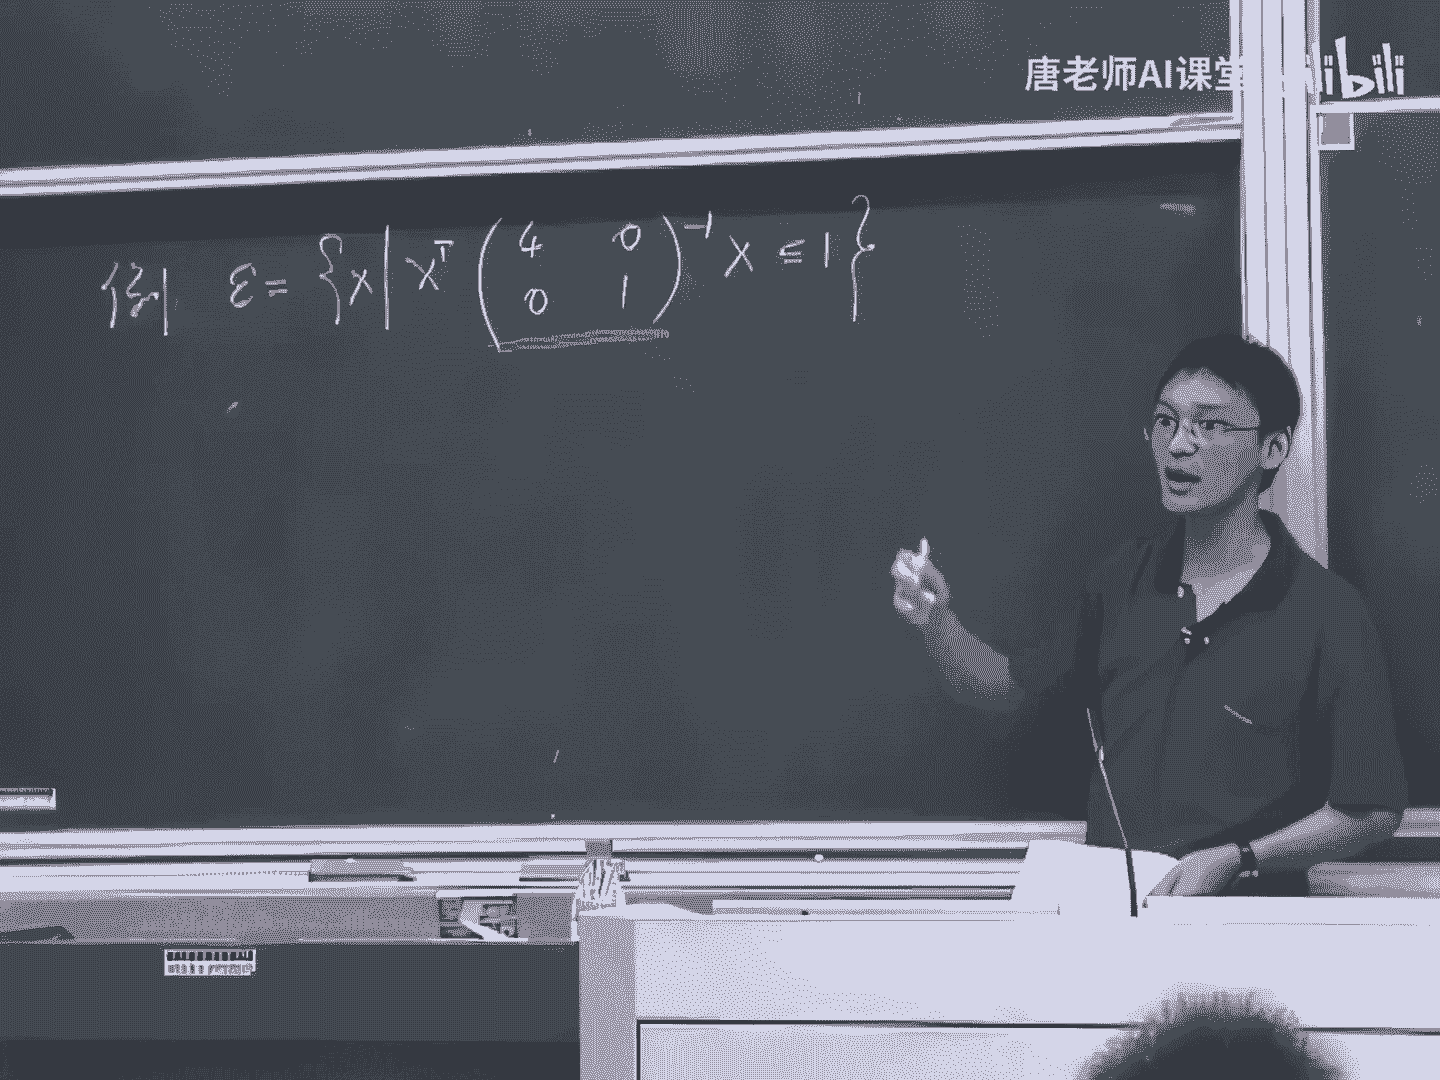 唐老师AI课堂 bilibili
例 ε = {x | xᵀ (4 0; 0 1)⁻¹ x ≤ 1}